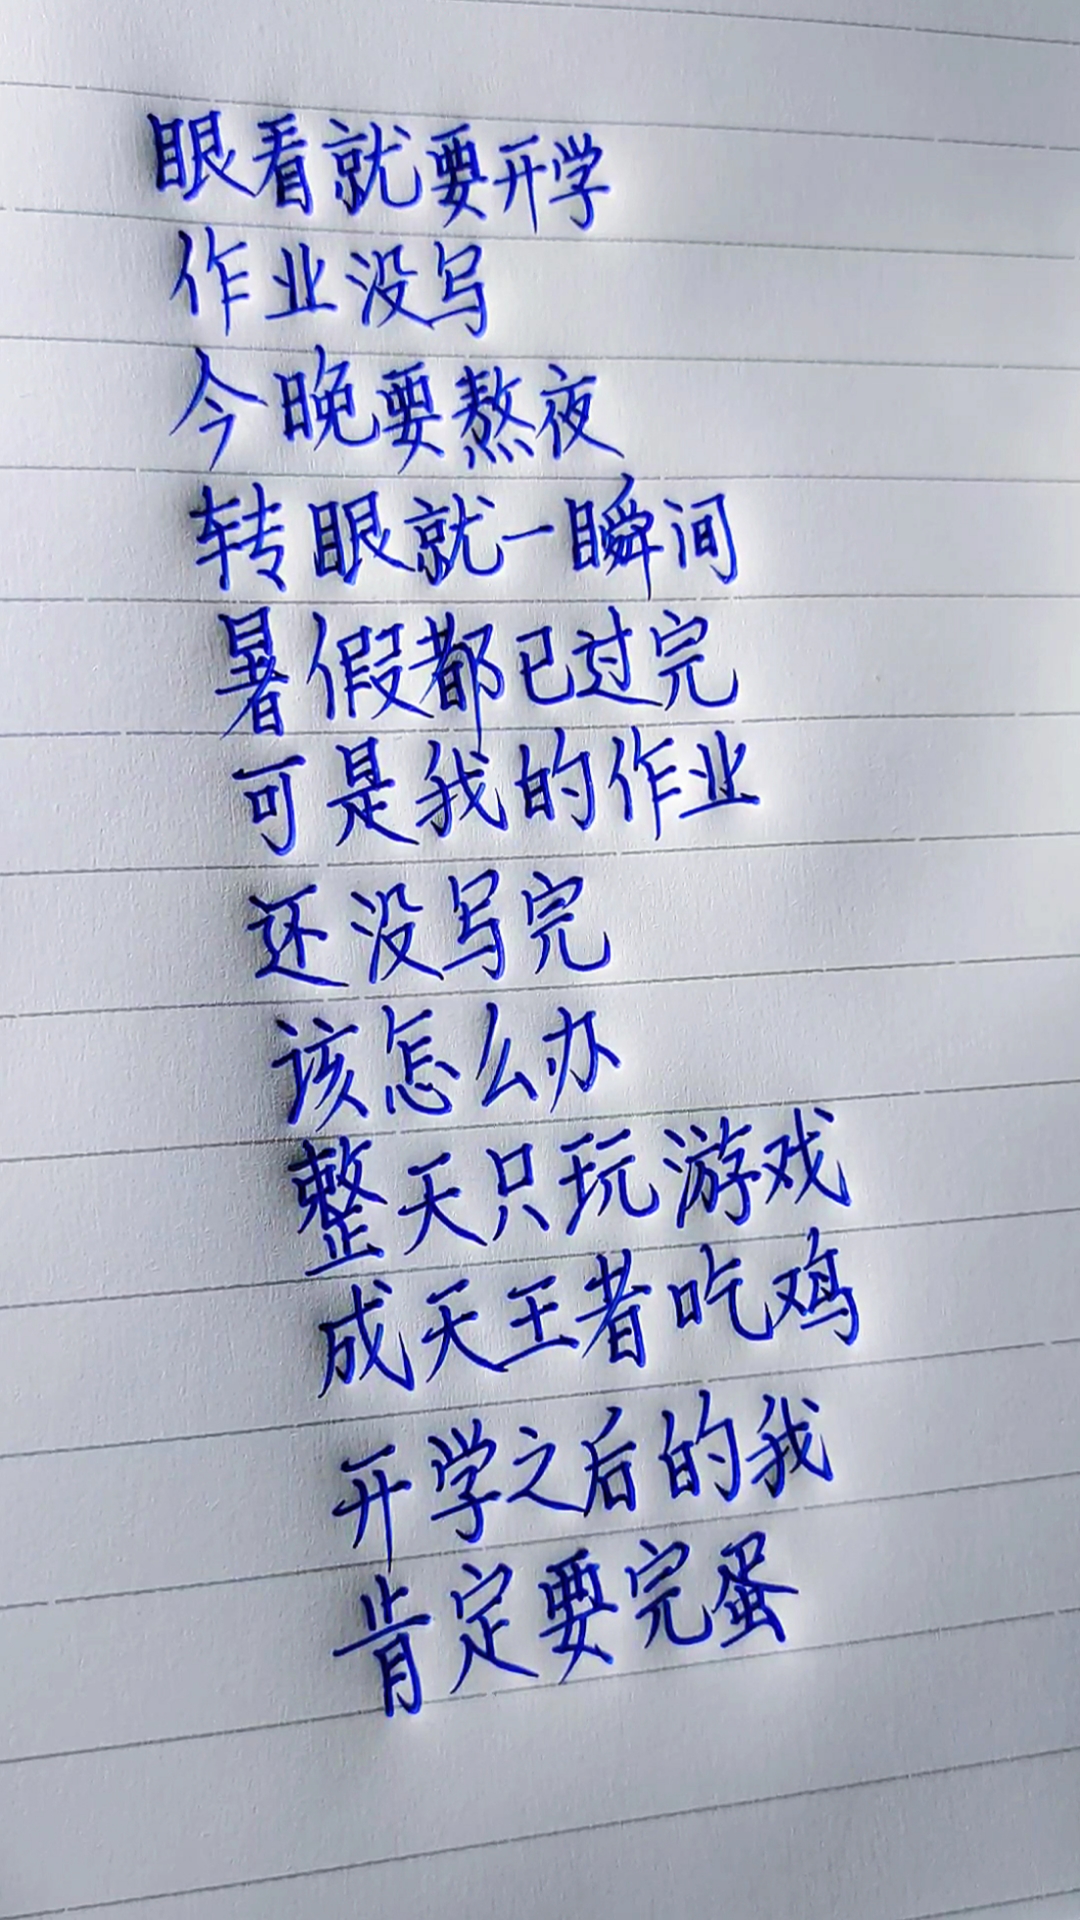 眼看就要开学
作业没写
今晚要熬夜
转眼就一瞬间
暑假都已过完
可是我的作业
还没写完
该怎么办
整天只玩游戏
成天王者吃鸡
开学之后的我
肯定要完蛋